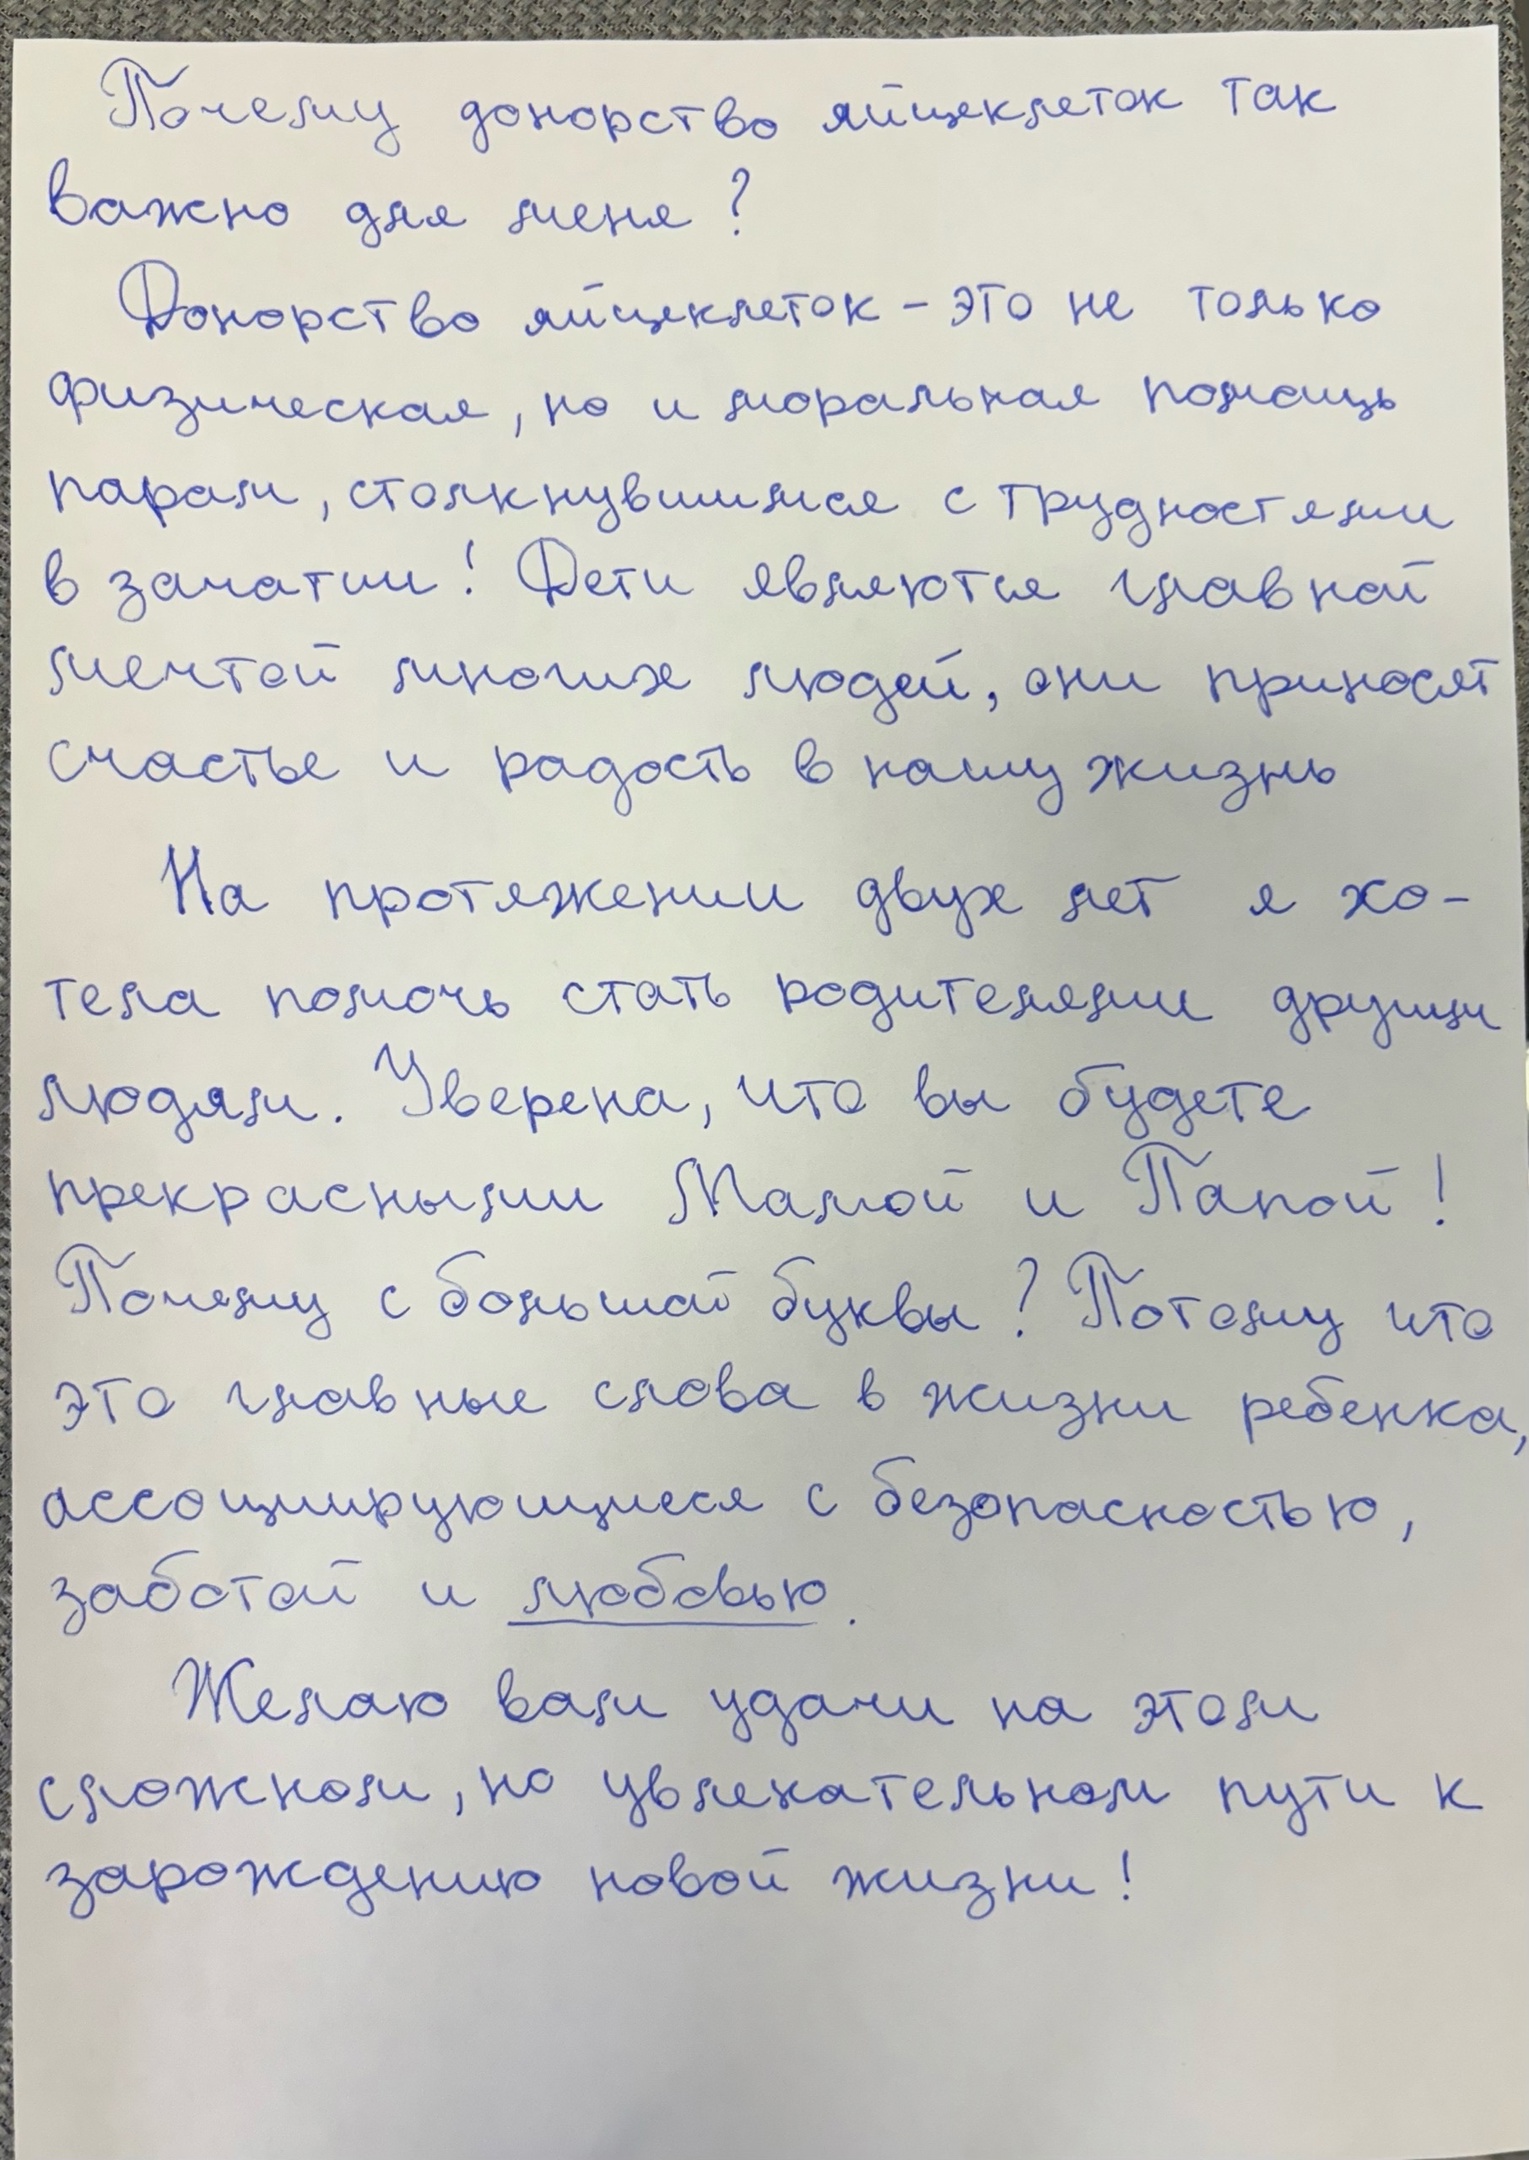 Почему донорство яйцеклеток так
важно для меня?
Донорство яйцеклеток - это не только
физическая, но и моральная помощь
парам, столкнувшимся с трудностями
в зачатии! Дети являются главной
мечтой многих людей, они приносят
счастье и радость в нашу жизнь
На протяжении двух лет я хо-
тела помочь стать родителями другим
людям. Уверена, что вы будете
прекрасными Мамой и Папой!
Почему с большой буквы? Потому что
это главные слова в жизни ребенка,
ассоциирующиеся с безопасностью,
заботой и любовью.
Желаю вам удачи на этом
сложном, но увлекательном пути к
зарождению новой жизни!